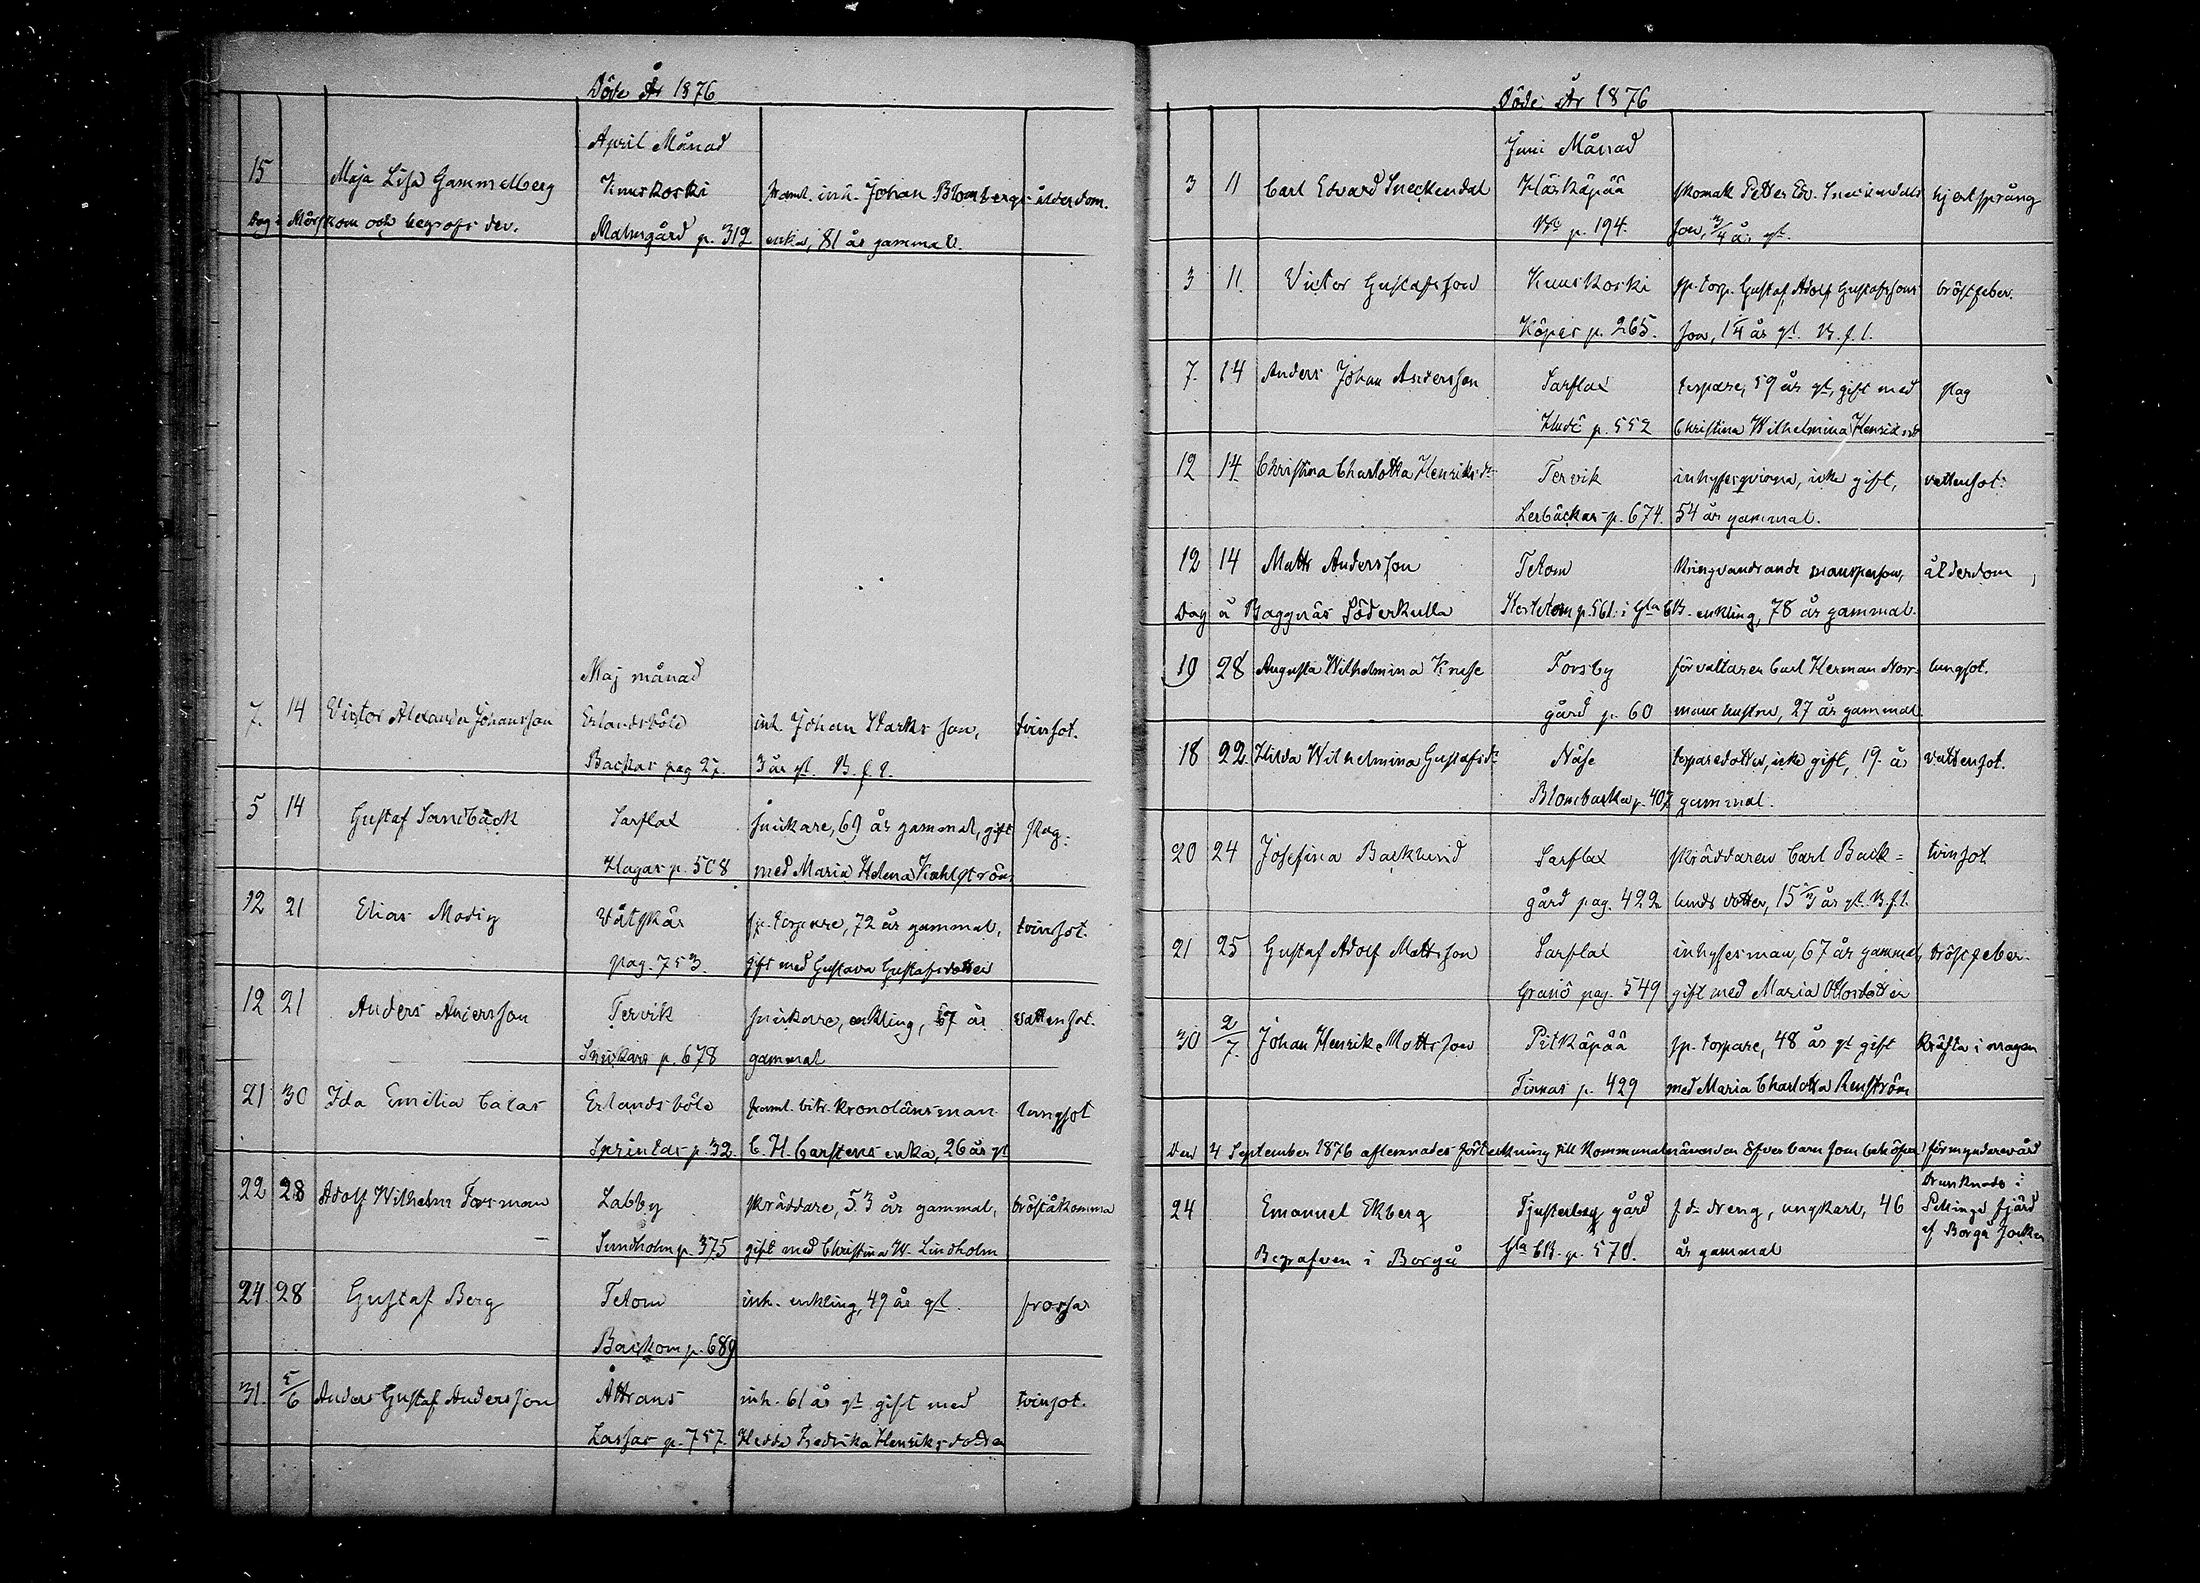 Döde År 1876
April Månad
15 Maja Lisa Gammelberg Kuuskoski framl. inh. Johan Blombergs ålderdom.
Dog i Mörskom och begrofs der. Malmgård p. 312 enka, 81 år gammal.
Maj månad
7. 14 Victor Alexander Johansson Erlandsböle inh. Johan Starks son, tvinsot.
Backas pag 27. 3 år gl. B. f. l.
5 14 Gustaf Sandbäck Sarflax snikare, 69 år gammal, gift slag.
Hagas p. 508 med Maria Helena
12 21 Elias Modig Våtskär sp. torpare, 72 år gammal, tvinsot.
pag. 753. gift med Gustava Gustafsdotter
12 21 Anders Andersson Tervik snikare, enkling, 67 år vattensot.
Snikars p. 678 gammal
21 30 Ida Emilia Calas Erlandsböle framl. bitr. kronolänsman lungsot
p. 32. C. H. Carstens enka, 26 år gl
22 28 Adolf Wilhelm Forsman Labby skräddare, 53 år gammal, bröståkomma
Sundholm p. 375 gift med Christina W. Lindholm
24 28 Gustaf Berg Tetom inh. enkling, 49 år gl. frossa
Backom p. 689
31. 5/6 Anders Gustaf Andersson Åttrans inh. 61 år gl gift med tvinsot.
Lassas p. 757. Hedda Fredrika Henriksdotter
Döde År 1876
Juni Månad
3 11 Carl Edvard Sneckendal Käskäpää skomak. Petter Edv. Sneckendals hjertsprång
p. 194. son, 3/4 år gl.
3 11. Victor Gustafsson Kuuskoski sp. torp. Gustaf Adolf Gustafssons bröstfeber.
Köpes p. 265. son, 1 1/4 år gl. B. f. l.
7. 14 Anders Johan Andersson Sarflax torpare, 59 år gl, gift med slag
p. 552 Christina Wilhelmina Henriksd
12 14 Christina Charlotta Henriksdr Tervik inhysesqvinna, icke gift, vattensot.
Lerbäckas p. 674. 54 år gammal.
12 14 Matts Andersson Tetom kringvandrande mansperson, ålderdom
Dog å Baggnäs Söderkulla p. 561. i Gla CB. enkling, 78 år gammal.
19 28 Augusta Wilhelmina Kruse Forsby förvaltaren Carl Herman Norr- lungsot.
gård p. 60 mans hustru, 27 år gammal
18 22 Hilda Wilhelmina Gustafsdr Näse torparedotter, icke gift, 19 år vattensot.
Blombacka p. 407 gammal.
20 24 Josefina Backlund Sarflax skräddaren Carl Back- tvinsot.
gård pag. 422 lunds dotter, 15 år gl. B. f. l.
21 25 Gustaf Adolf Mattsson Sarflax inhysesman, 67 år gammal, bröstfeber.
Granö pag. 549 gift med Maria Ottosdotter
30 2/7. Johan Henrik Mattsson Pitkäpää sp. torpare, 48 år gl gift kräfta i magen
Finnas p. 429 med Maria Charlotta Renström
Den 4 September 1876 aflemnades förteckning till Kommunalnämnden öfver barn som behöfva förmyndarevård
24 Emanuel Ekberg Tjusterby gård f. d. dreng, ungkarl, 46 Drunknade i
Begrafven i Borgå Gla CB. p. 570. år gammal Pellinge fjärd
af Borgå socken